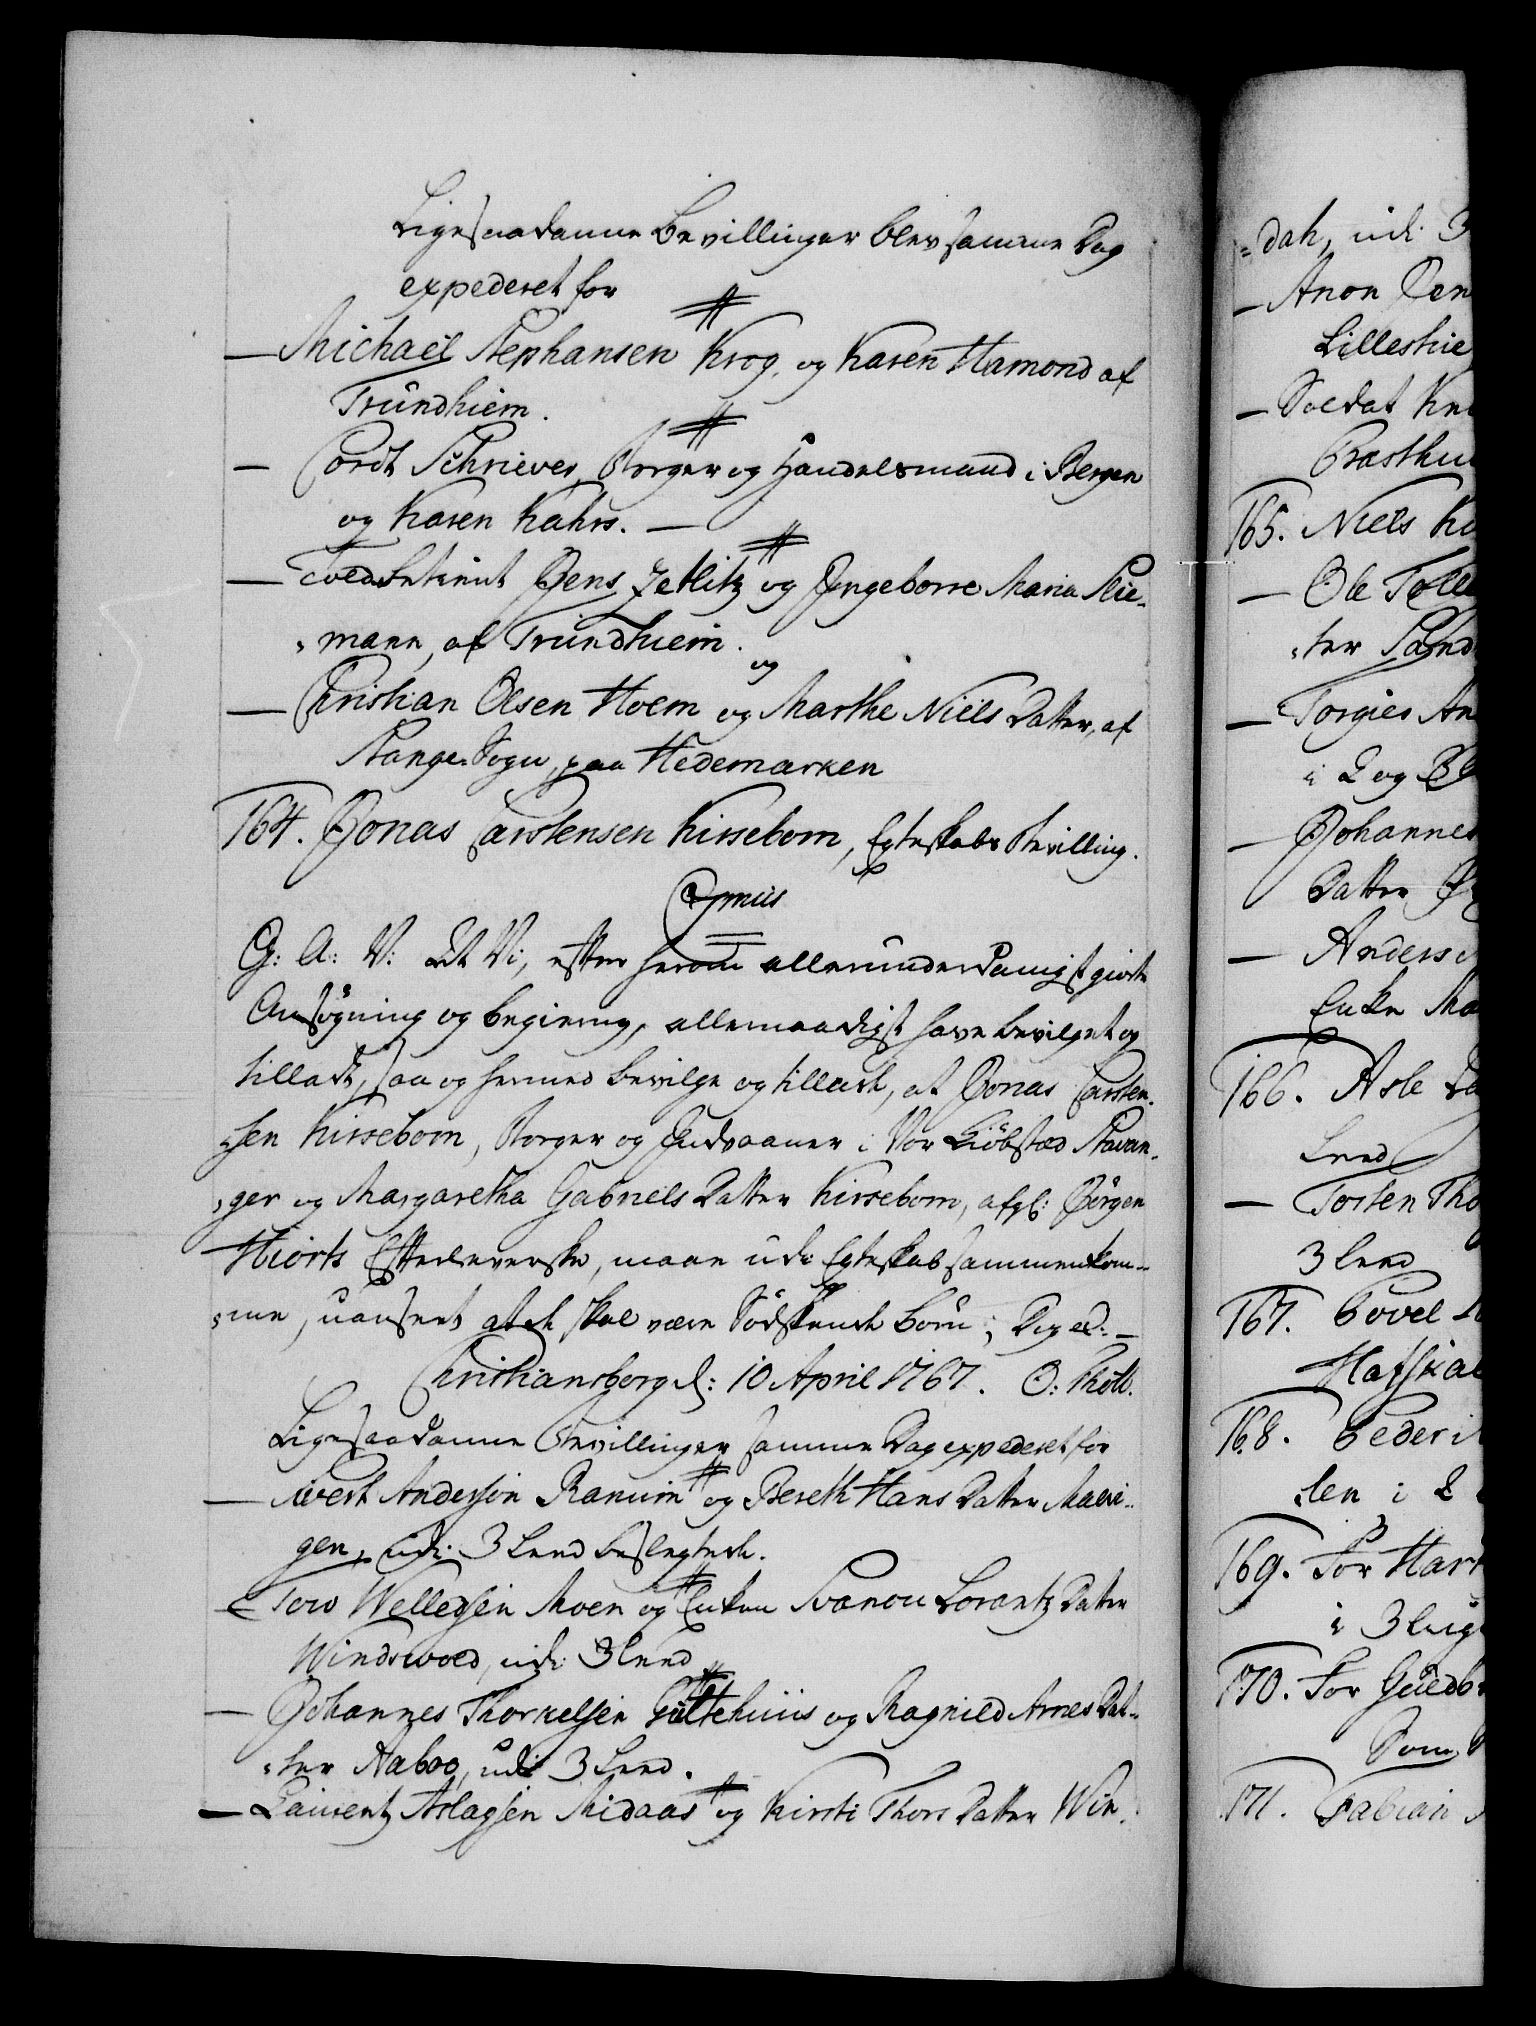 Ligesaadanne Bevillinger blev samme Dag
expederet for
— Michaël Stephansen Krog, og Karen Hamond af
Trundhiem.
— Cordt Schriever, Borger og Handelsmand i Bergen
og Karen Kahrs. —
— Jens Zetlitz og Jngeborre Maria Stie-
mann, af Trundhiem.
og
— Christian Olsen Hoem og Marthe Niels Datter, af
Stange Sogn, paa Hedemarken
164. Jonas Carstensen Kirsebom, Egteskabs Bevilling.
G: A: V: At Vi, efter herom allerunderdanigst giorte
Ansøgning og begiering, allernaadigst have bevilget og
tilladt, saa og hermed bevilge og tillade, at Jonas Carsten-
sen Kirsebom, Borger og Indvaaner i Vor Kiøbstæd Stavan-
ger og Margaretha Gabriels Datter Kirsebom, afgl: Jørgen
Hiorts Efterleverske, maae udi Egteskab sammenkom-
me, uanseet at de skal være Sødskende Børn; Dog ed: —
Christiansborg d: 10 April 1767. O: Thott.
Ligesaadanne Bevillinger samme Dag expederet for
— Iwert Andersen Ranum og Bereth Hans Datter Mæri-
gen, udi 3 Leed beslegtede.
— Tow Wellersen Moen og Enken Svanou Lorentz Datter
udi 3 Leed
— Johannes Thorkelsen Gultehuus og Ragnild Arnes Dat-
ter Aaboe, udi 3 Leed.
— Laurentz Aslagsen Midaas og Kirsti Thors Datter Win-
dah, udi 3
— Anon Jen
Lilleskie
— Soldat Knu
165. Niels
— Ole Tolle
ter Sand
— Torgier An
i 2 og 3
— Johannes
Datter
— Anders
Enke Ma
166. Asle
Leed
— Torsten Tho
3 Leed
167. Povel
168. Peder
len i 2
169. For Har
i 3 Leg
170. For Guldb
Som
171. Fabian